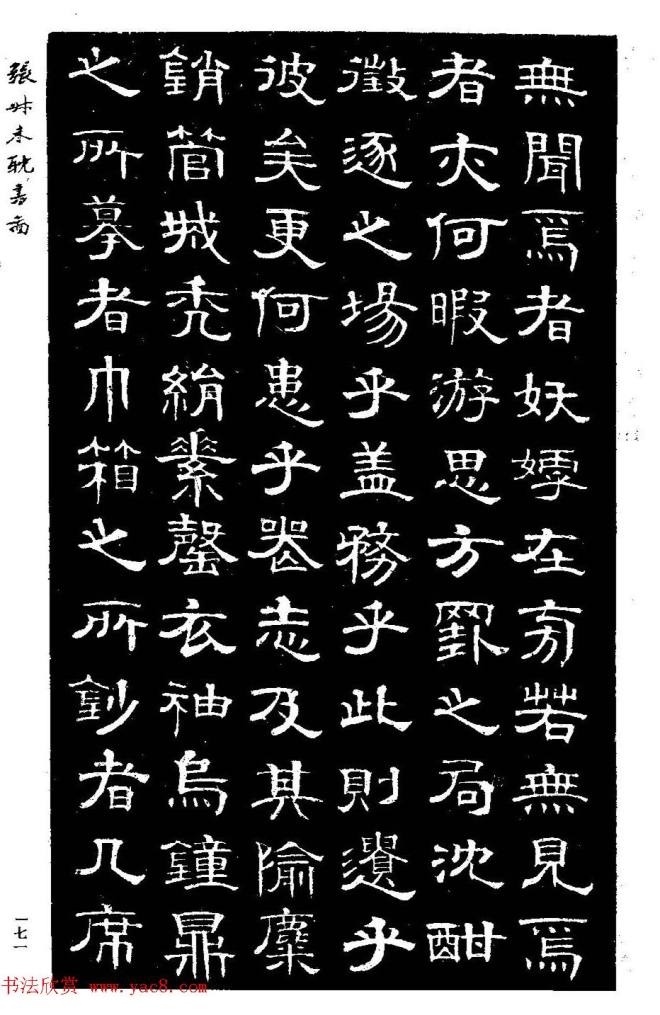 無聞焉者妖嫮在旁若無見焉
者亦何暇游思方罫之局沈酣
徵逐之場乎盖務乎此則遺乎
彼矣更何患乎喪志及其隃麋
銷管城禿絹素罄衣袖烏鐘鼎
之所摹者巾箱之所鈔者几席
張叔未耽書啚
一七一
书法欣赏 www.yac8.com